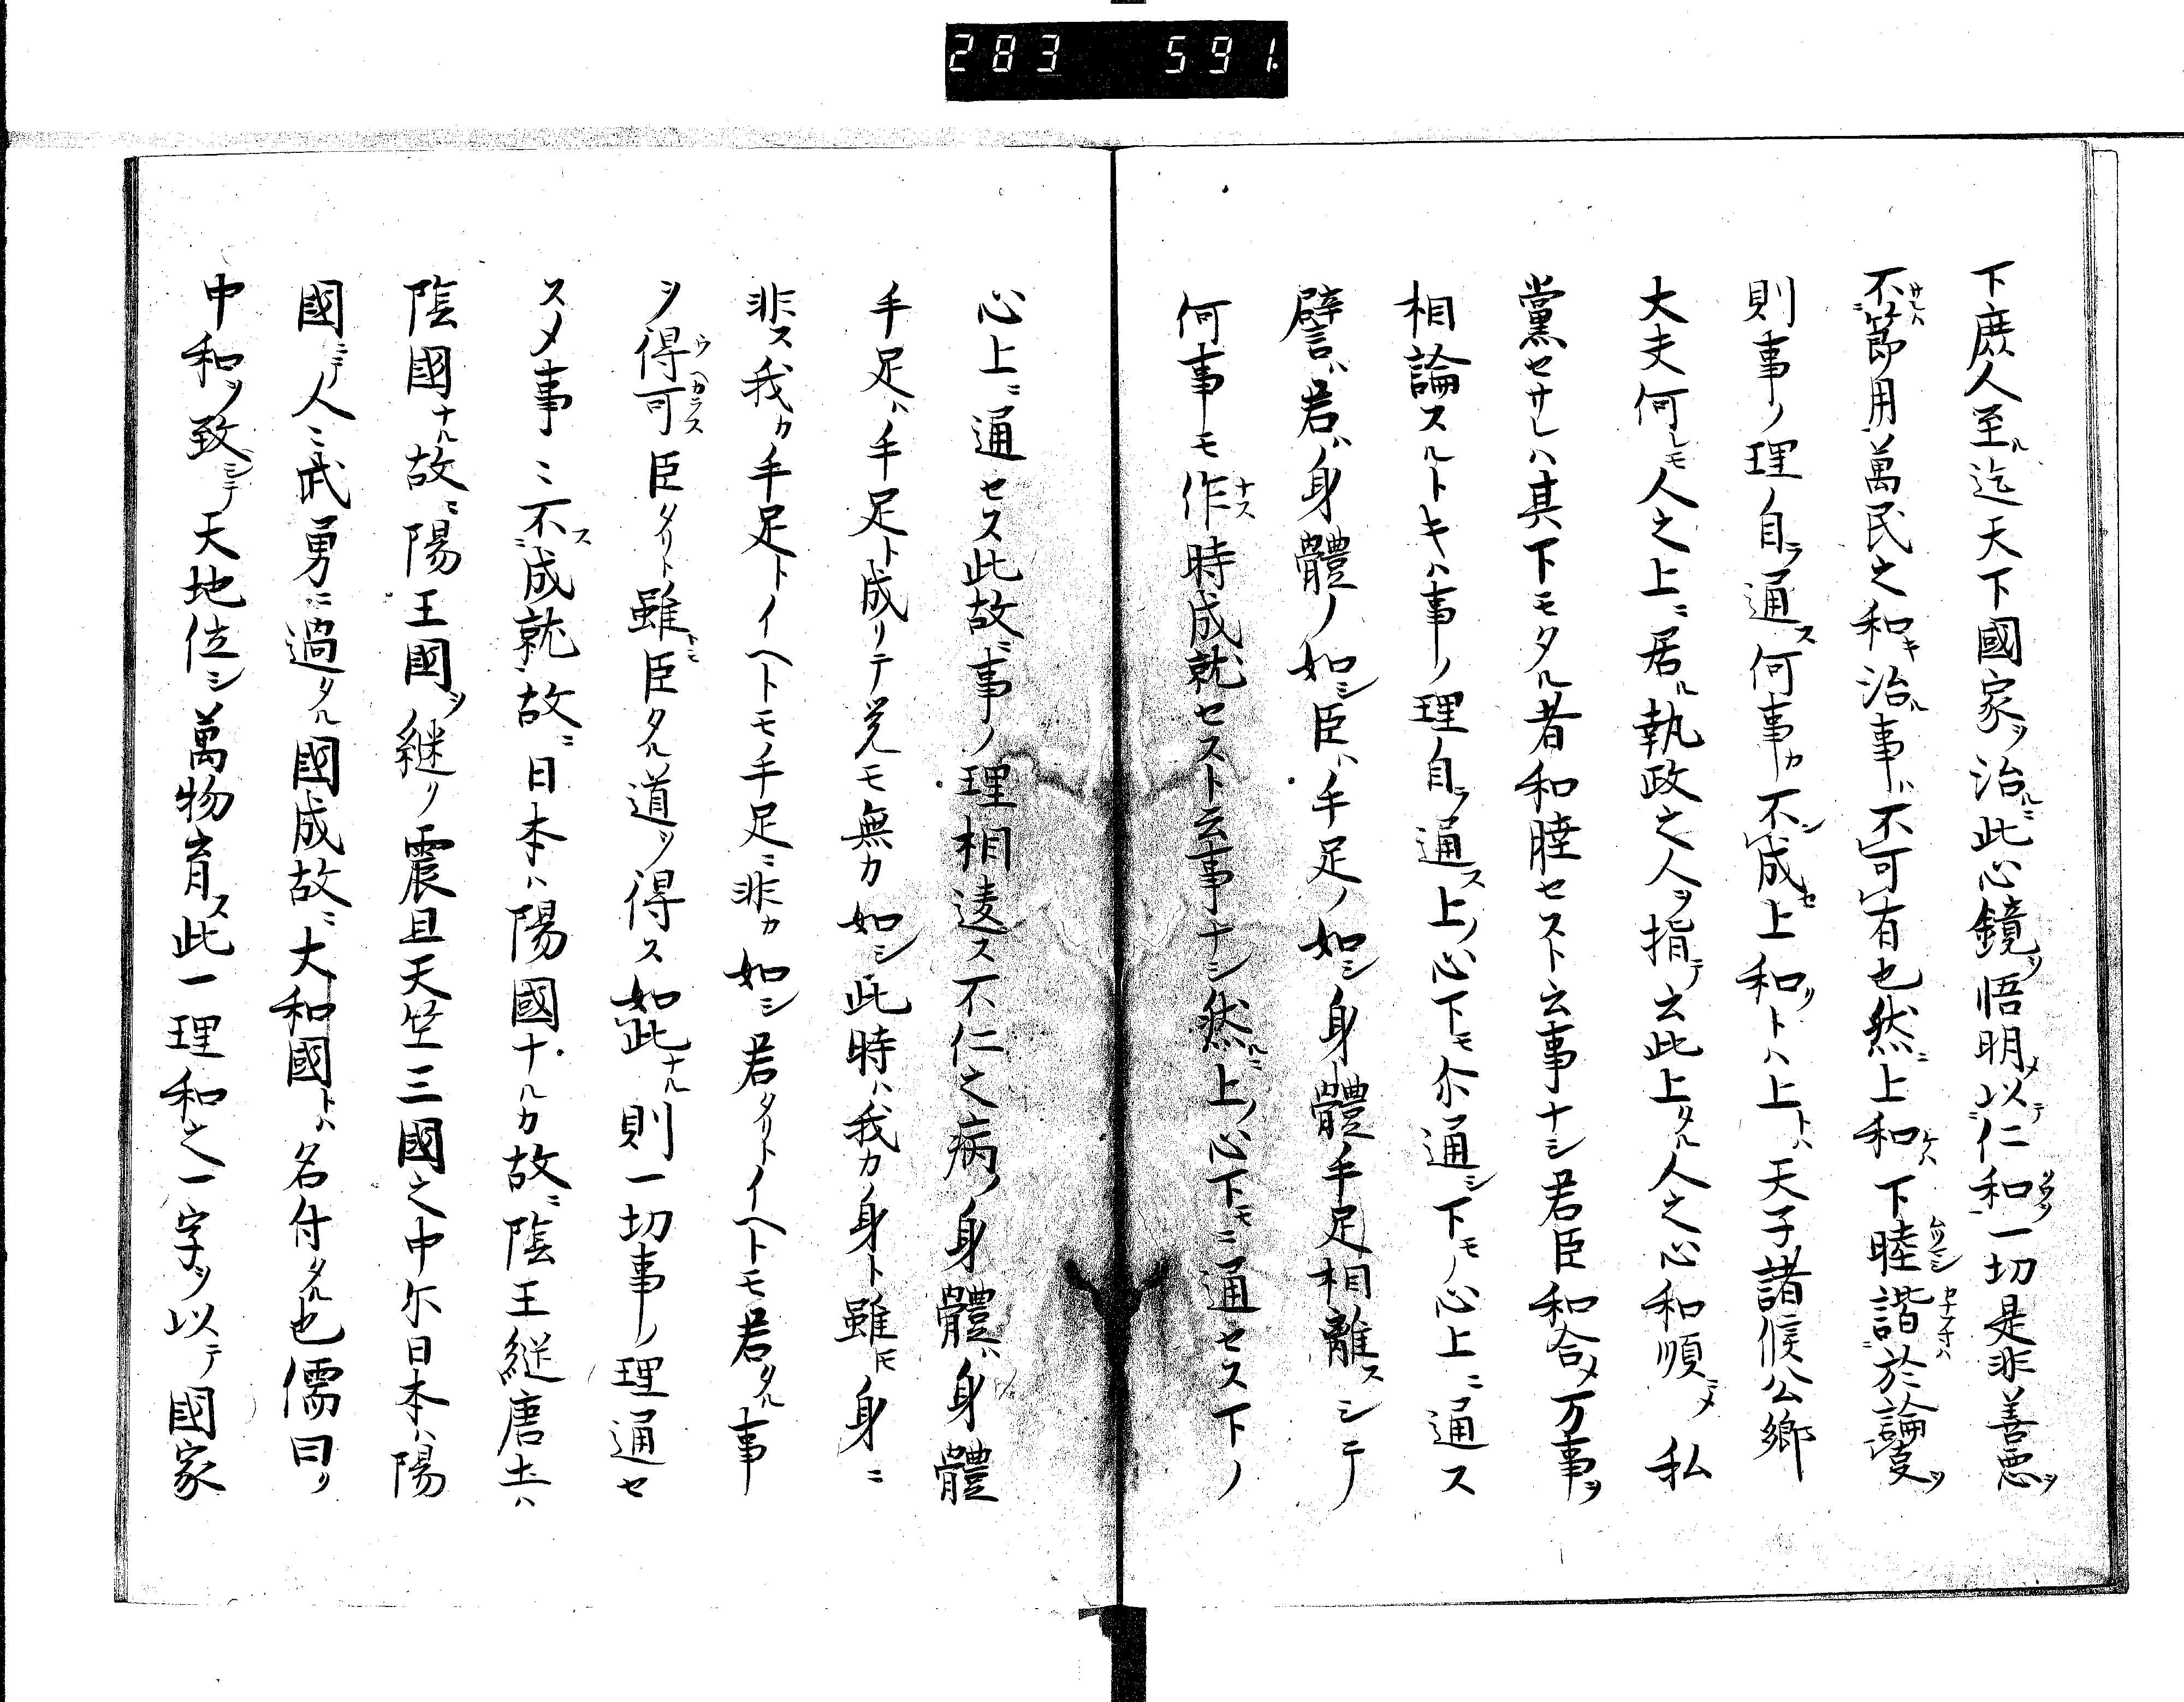 283 591.
下庶人至ル迄天下國家ヲ治ルニ此心鏡ヲ悟明メ以テ仁和一切是非善悪ヲ
不節用萬民之和キ治ル事ハ不可有也然ニ上和ケハ下睦諧於論夏ヲ
則事ノ理自ラ通ス何事カ不成上和ヲトハ上トハ天子諸候公郷
大夫何レモ人之上ニ居ル執政之人ヲ指テ云此上タル人之心和順ニメ私
黨セサレハ其下モタル者和睦セスト云事ナシ君臣和合メ万事ヲ
相論スルトキハ事ノ理自ラ通ス上ノ心下モ尓通シ下モノ心上ニ通ス
譬ハ君ハ身體ノ如シ臣ハ手足ノ如シ身體手足相離スシテ
何事モ作ス時成就セスト云事ナシ然ルニ上ノ心下モニ通セス下ノ
心上ニ通セス此故ニ事ノ理相違ス不仁之病ノ身體ハ身體
手足ハ手足ト成リテ覚モ無カ如シ此時ハ我カ身ト雖モ身ニ
非ス我カ手足トイヘトモ手足ニ非カ如シ君タリトイヘトモ君タル事
ヲ得可臣タリト雖トモ臣タル道ヲ得ス如此ナル則一切事ノ理通セ
スメ事ミ不成就故ニ日本ハ陽國ナルカ故ニ陰王縦唐土ハ
陰國ナル故ニ陽王國ヲ継リ震旦天竺三國之中尓日本ハ陽
國ニテ人ミ武勇ニ過タル國成故ニ大和國トハ名付タル也儒曰リ
中和ヲ致シテ天地位シ萬物育ス此一理和之一字ヲ以テ國家